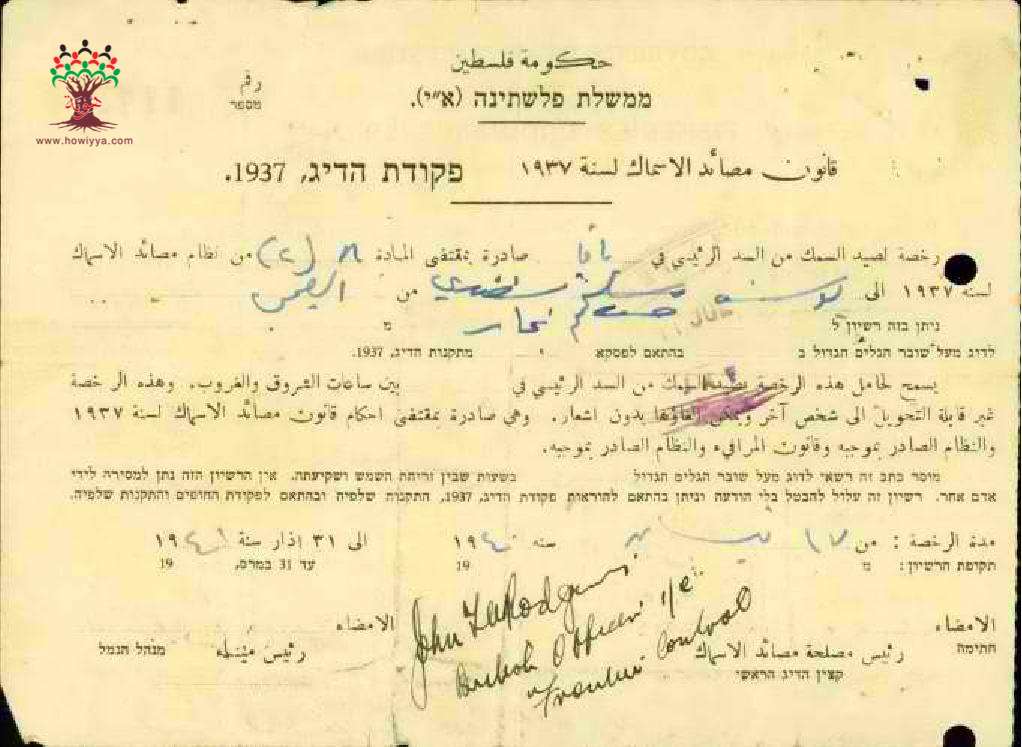 www.howiyya.com
حكومة فلسطين
ממשלת פלשתינה (א״י).
رقم
מספר
قانون مصائد الاسماك لسنة ١٩٣٧
פקודת הדיג, 1937.
رخصة لصيد السمك من السد الرئيسي في يافا صادرة بمقتضى المادة (٢) من نظام مصائد الاسماك
لسنة ١٩٣٧ الى من
ניתן בזה רשיון ל מ
לדיג מעל שובר הגלים הגדול ב בהתאם לפסקא מתקנות הדיג, 1937.
يسمح لحامل هذه الرخصة بصيد السمك من السد الرئيسي في بين ساعات الشروق والغروب. وهذه الرخصة
غير قابلة التحويل الى شخص آخر ويمكن الغاؤها بدون اشعار. وهي صادرة بمقتضى احكام قانون مصائد الاسماك لسنة ١٩٣٧
والنظام الصادر بموجبه وقانون المرافيء والنظام الصادر بموجبه.
מוסר כתב זה רשאי לדוג מעל שובר הגלים הגדול בשעות שבין זריחת השמש ושקיעתה. אין הרשיון הזה נתן למסירה לידי
אדם אחר. רשיון זה עלול להבטל בלי הודעה וניתן בהתאם להוראות פקודת הדיג, 1937, התקנות שלפיה ובהתאם לפקודת החופים והתקנות שלפיה.
مدة الرخصة : من ١٧ سنه ١٩٤٠ الى ٣١ اذار سنة ١٩٤١
תקופת הרשיון : מ 19 עד 31 במרס, 19
John
British Officer i/c
Frontier Control
الامضاء
חתימה
رئيس مصلحة مصائد الاسماك
קצין הדיג הראשי
الامضاء
رئيس ميناء
מנהל הנמל